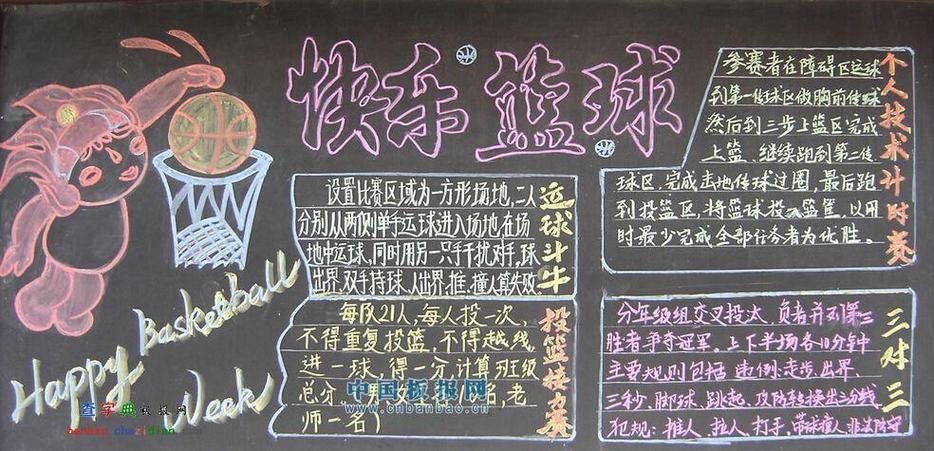 快乐篮球
Happy Basketball Week
运球斗牛
设置比赛区域为一方形场地,二人
分别从两侧单手运球进入场地,在场
地中运球,同时用另一只手干扰对手,球
出界,双手持球,人出界,推、撞人算失败.
投篮接力赛
每队21人,每人投一次,
不得重复投篮,不得越线,
进一球,得一分,计算班级
总分.
名,老
师一名)
个人技术计时赛
参赛者在障碍区运球
到第一传球区做胸前传球
然后到三步上篮区完成
上篮.继续跑到第二传
球区,完成击地传球过圈,最后跑
到投篮区,将篮球投入篮筐,以用
时最少完成全部任务者为优胜。
三对三
分年级组交叉投汰,负者并列第三
胜者争夺冠军。上下半场各10分钟
主要规则包括 违例:走步、出界、
三秒,脚球、跳起、攻防转换出三分线
犯规:推人、拉人、打手,带球撞人,非法防守
中国板报网
www.cnbanbao.cn
查字典板报网
banbao.chazidian